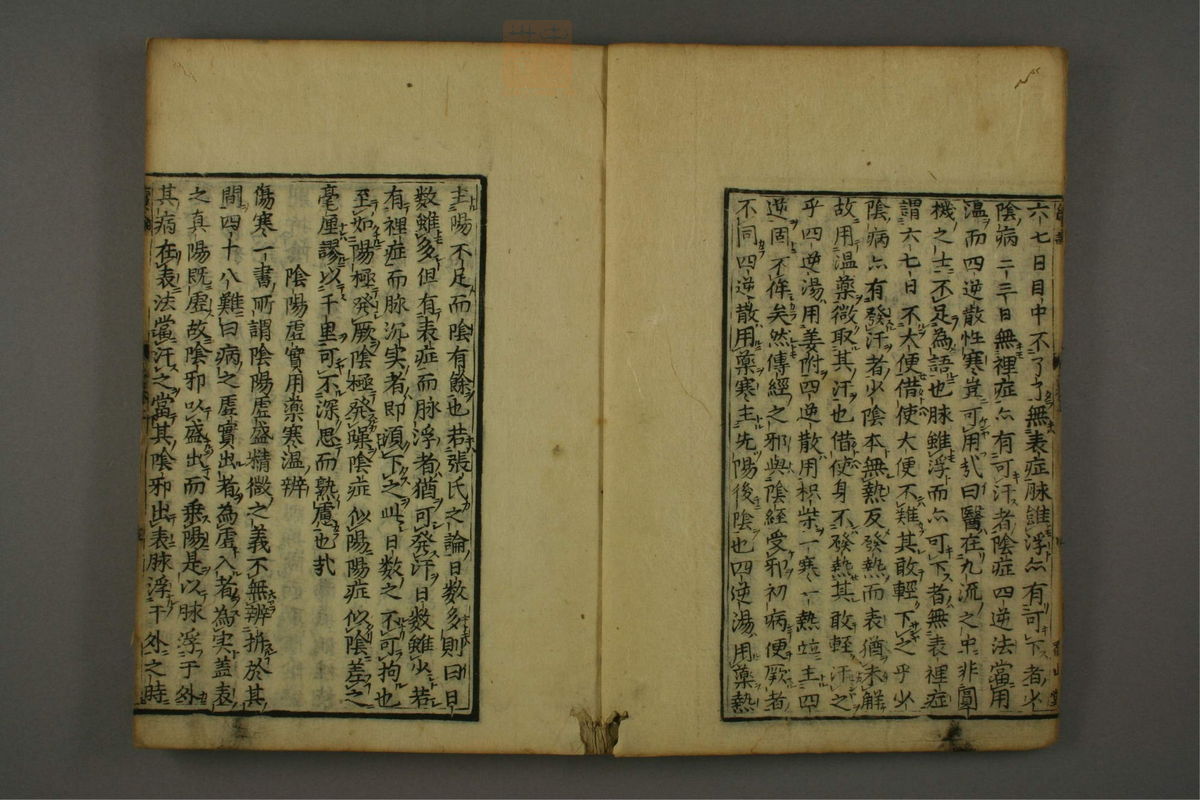 六七日目中不了了無表症脉雖浮亦有可下者少
陰病二三日無裡症亦有可汗者陰症四逆法當用
温而四逆散性寒豈可用哉曰醫在九流之中非圓
機之士不足為語也脉雖浮而亦可下者無表裡症
謂六七日不大便借使大便不難其敢輕下之乎少
陰病亦有發汗者少陰本無熱反發熱而表猶未觧
故用温藥微取其汗也借使身不發熱其敢輕汗之
乎四逆湯用姜附四逆散用枳柴一寒一熱並主四
逆固不侔矣然傳經之邪與陰經受邪初病便厥者
不同四逆散用藥寒主先陽後陰也四逆湯用藥熱
主陽不足而陰有餘也若張氏之論日数多則曰日
数雖多但有表症而脉浮者猶可発汗日数雖少若
有裡症而脉沉实者即須下之此日数之不可拘也
至如陽極発厥陰極発躁陰症似陽陽症似陰差之
毫厘謬以千里可不深思而熟慮也哉
陰陽虚實用藥寒温辨
傷寒一書所謂陰陽虚盛精微之義不無辨拆於其
間四十八難曰病之虚實出者為虚入者為实蓋表
之真陽既虚故陰邪以盛出而乗陽是以脉浮于外
其病在表法當汗之當其陰邪出表脉浮于外之時